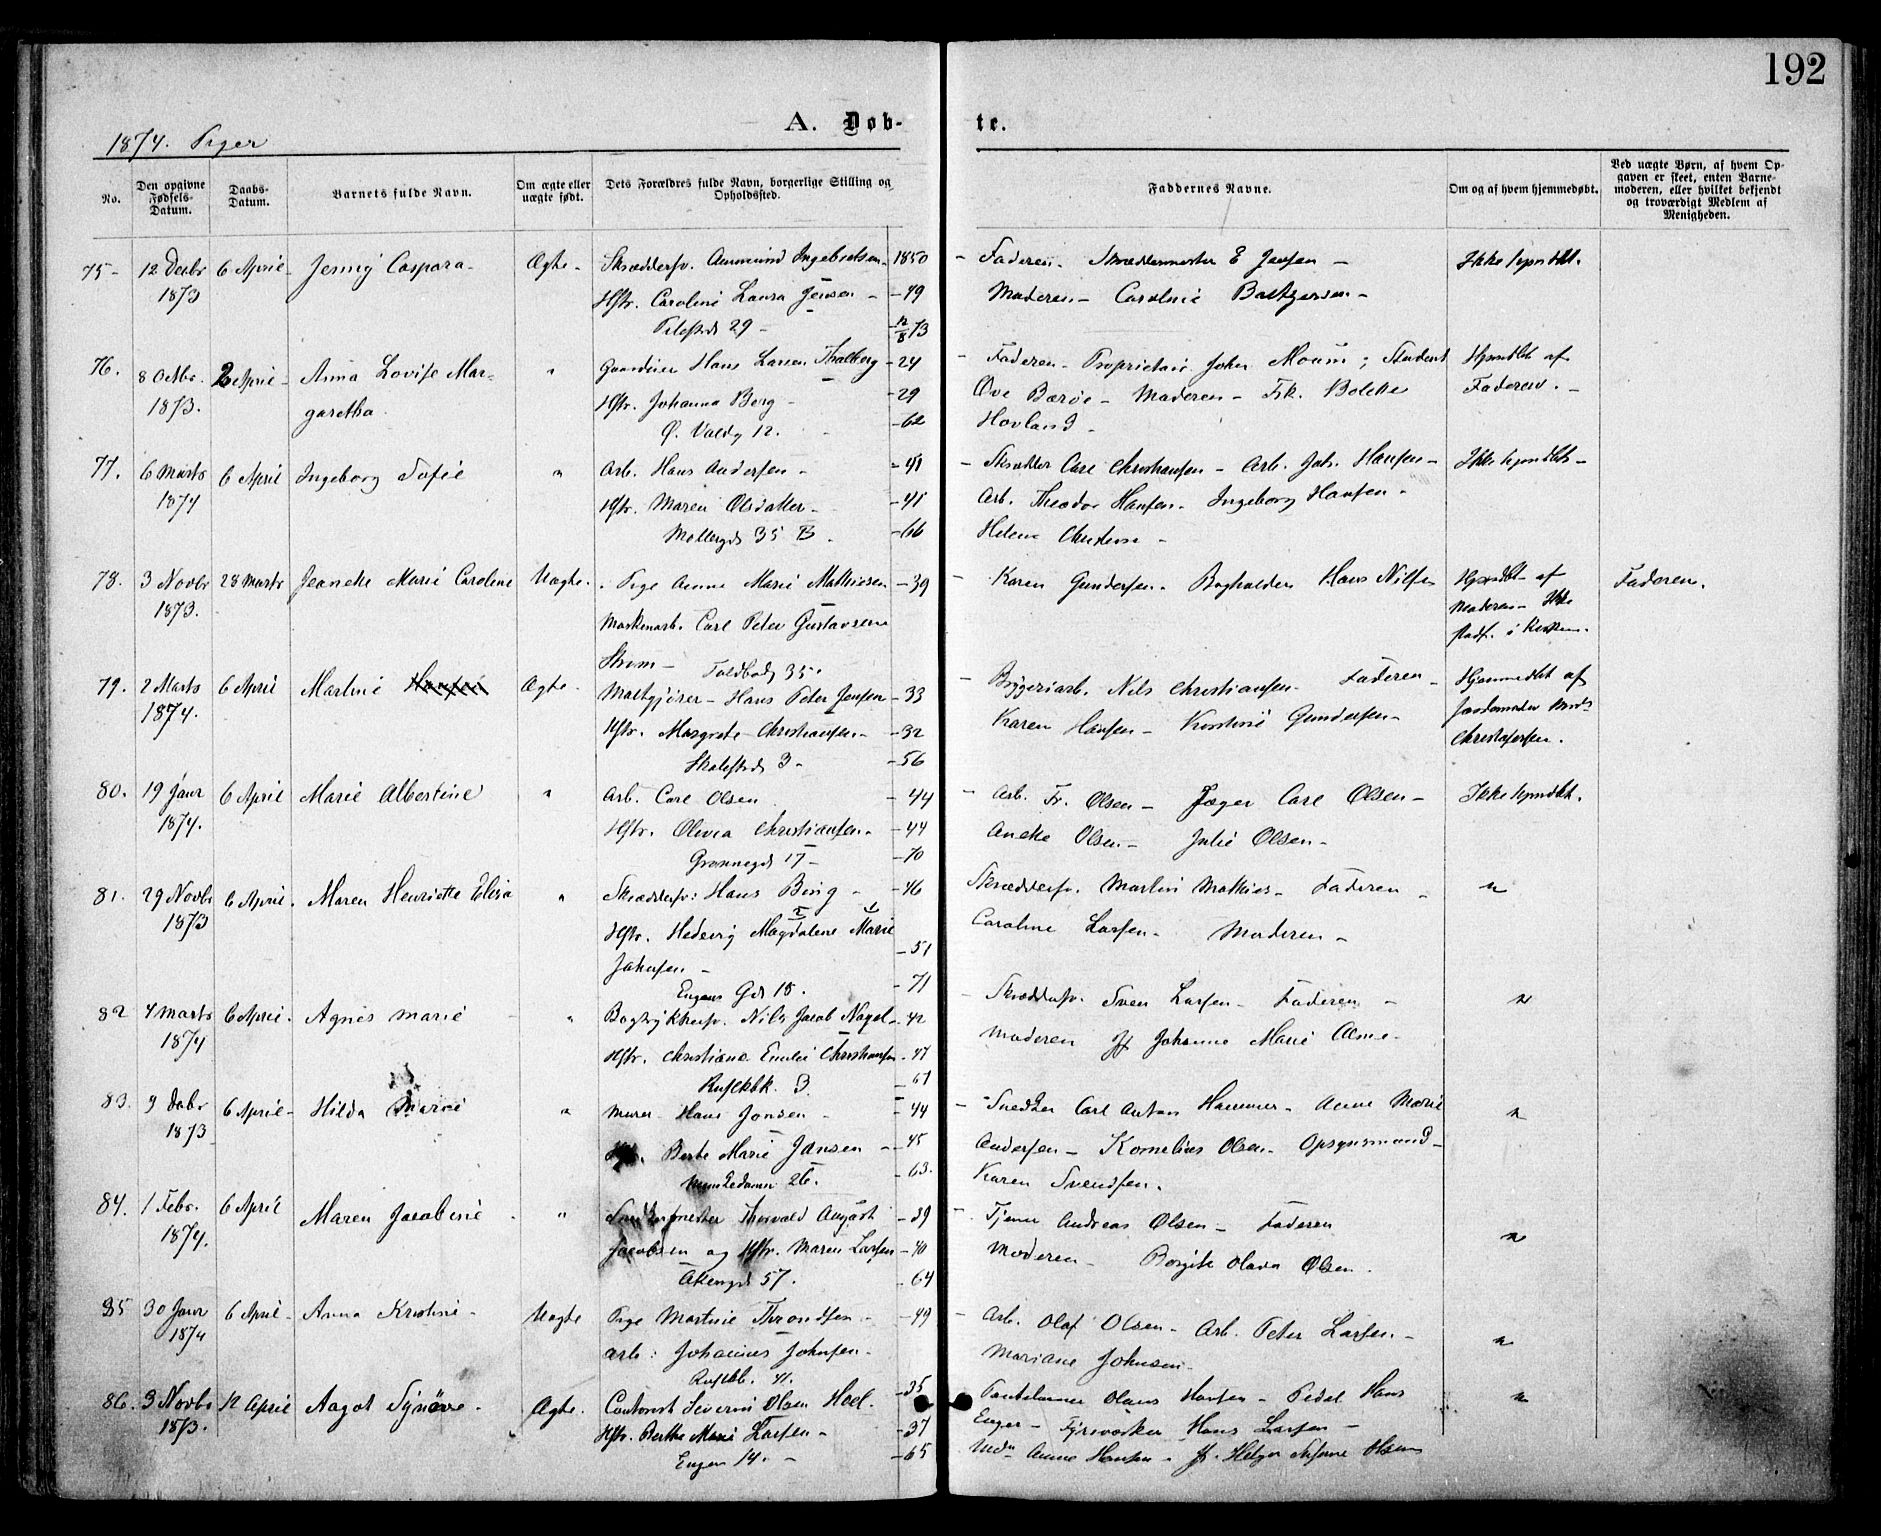 192
A. Døb- te.
1874. Piger
No.
Den opgivne Fødsels-Datum.
Daabs-Datum.
Barnets fulde Navn.
Om ægte eller uægte født.
Dets Forældres fulde Navn, borgerlige Stilling og Opholdssted.
Faddernes Navne.
Om og af hvem hjemmedøbt.
Ved uægte Børn, af hvem Opgaven er skeet, enten Barnemoderen, eller hvilket bekjendt og troværdigt Medlem af Menigheden.
75- 12 Decbr 6 April- Jenny Caspara- Ægte- Skræddersv. Ammund Ingebretsen- 1850 - Faderen- Skræddermester E Jensen - Ikke hjmdbt.
1873 Hstr. Caroline Laura Jensen - -49 Moderen- Caroline
Pilestrd 29 - 73
76. 8 Octbr. 2 April- Anna Lovise Mar- " Gaardeier Hans Larsen Thalberg -24 - Faderen- Proprietair John Moum; Student Hjmdbt af
1873. garetha. Hstr. Johanna Berg - -29 Ove Barøe - Moderen- Frk. Bolette Faderen. -
Ø. Voldg 12. -62 Hovland -
77. 6 Marts 6 April Ingeborg Sofie " Arb. Hans Andersen - -41 - Skrædder Carl Christiansen - Arb. Joh. Hansen- Ikke hjmdbt-
1874 Hstr. Maren Olsdatter- -41 Arb. Theodor Hansen- Ingeborg Hansen-
Møllergd 35 B. -66 Helene
78. 3 Novbr 28 Marts Jeanette Marie Caroline Uægte. Pige Anne Marie Mathiesen -39 - Karen Gundersen. Bogholder Hans Nilsen Hjmdbt- af Faderen.
1873. Maskinarb. Carl Peter Gustavsen Moderen- Ikke
Strøm- Toldbodg 35. stadf. i Kirken.
79. 2 Marts 6 April Martine Ægte. Maltgjører- Hans Peter Jensen -33 - Bryggeriarb. Nils Christiansen- Faderen- Hjemmedbt af
1874. Hstr. Margrete Christiansen- -32 Karen Hansen- Kirstine Gundersen- Jordemoder
Skolestrd 3- -56 Christofersen.
80. 19 Janr 6 April Marie Albertine " Arb. Carl Olsen -44 - Arb. Fr. Olsen- Jæger Carl Olsen- Ikke hjmdbt.
1874. Hstr. Olivia Christiansen- -44 Anette Olsen- Julie Olsen-
Grønnegd 17- -70
81. 29 Novbr 6 April. Maren Henriette Elisa " Skræddersv: Hans Bing - -46 Skræddersv. Martin Mathies- Faderen - "
1873 Hstr. Hedevig Magdalene Marie -51 Caroline Larsen- Moderen-
Johnsen -
Engens Gd 15. -71
82 4 Marts 6 April. Agnes Marie " Bogtrykkersv. Nils Jacob Nagel- -42 - Skræddersv. Sven Larsen- Faderen - "
1874 Hstr. Christiane Emilie Christiansen -47 Moderen Jf Johanne Marie
Rusløkbk. 3. -61
83. 9 Debr 6 April- Hilda Marie " Murer Hans Jonsen - -44 - Snedker Carl Anton Hammer- Anne Marie "
1873 Hstr. Berte Marie Jansen -45 Andersen- Kornelius Olsen- Opsynsmand-
Munkedamm 26. -63. Karen Svendsen.
84. 1 Febr. 6 April Maren Jacobine " Thorvald August -39 - Tjener Andreas Olsen- Faderen "
1874. Jacobsen og Hstr. Maren Larsen -40 Moderen- Borgite Olava Olsen.
Akersgd 57. -64
85 30 Janr 6 April- Anna Kristine- Uægte Pige Martine Throndsen- -49 - Arb. Olaf Olsen- Arb. Peter Larsen- "
1874 Arb: Johannes Johnsen. Mariane Johnsen-
Rusløkb. 41.
86. 3 Novbr 12 April Aagot Synøve. Ægte. Contorist Severin Olsen Hoel. -35 Olaus Hansen- Pedel Hans "
1873. Hstr. Berthe Marie Larsen- -37 Enger- Fyrvorter Hans Larsen-
Engen 14. - -65 Anne Hansen- Jf. Helga